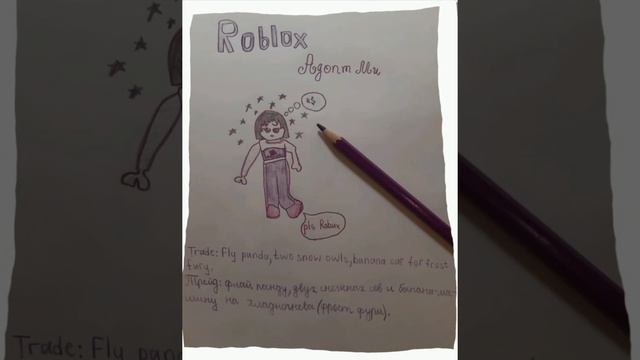 Roblox
Адопт Ми
R$
pls Robux
Trade: Fly panda, two snow owls, banana car for frost
fury.
Трейд: флай панду, двух снежных сов и банана-ма-
шину на хладногнева (фрост фури).
Trade: Fly pand